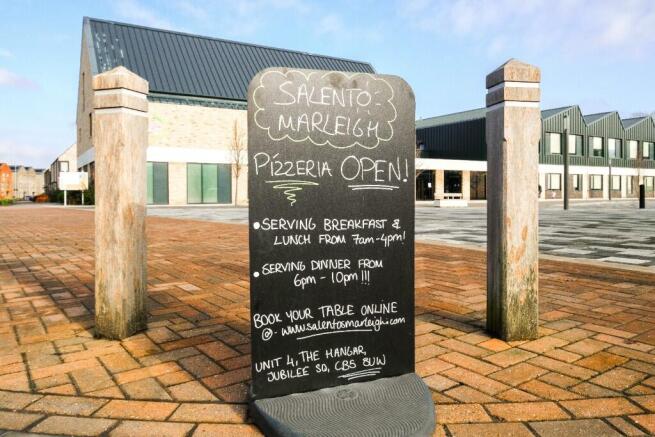 SALENTO-
MARLEIGH
PIZZERIA OPEN!
• SERVING BREAKFAST &
LUNCH FROM 7am-4pm!
• SERVING DINNER FROM
6pm - 10pm !!!
BOOK YOUR TABLE ONLINE
@- www.salentosmarleigh.com
UNIT 4, THE HANGAR,
JUBILEE SQ, CB5 8UW